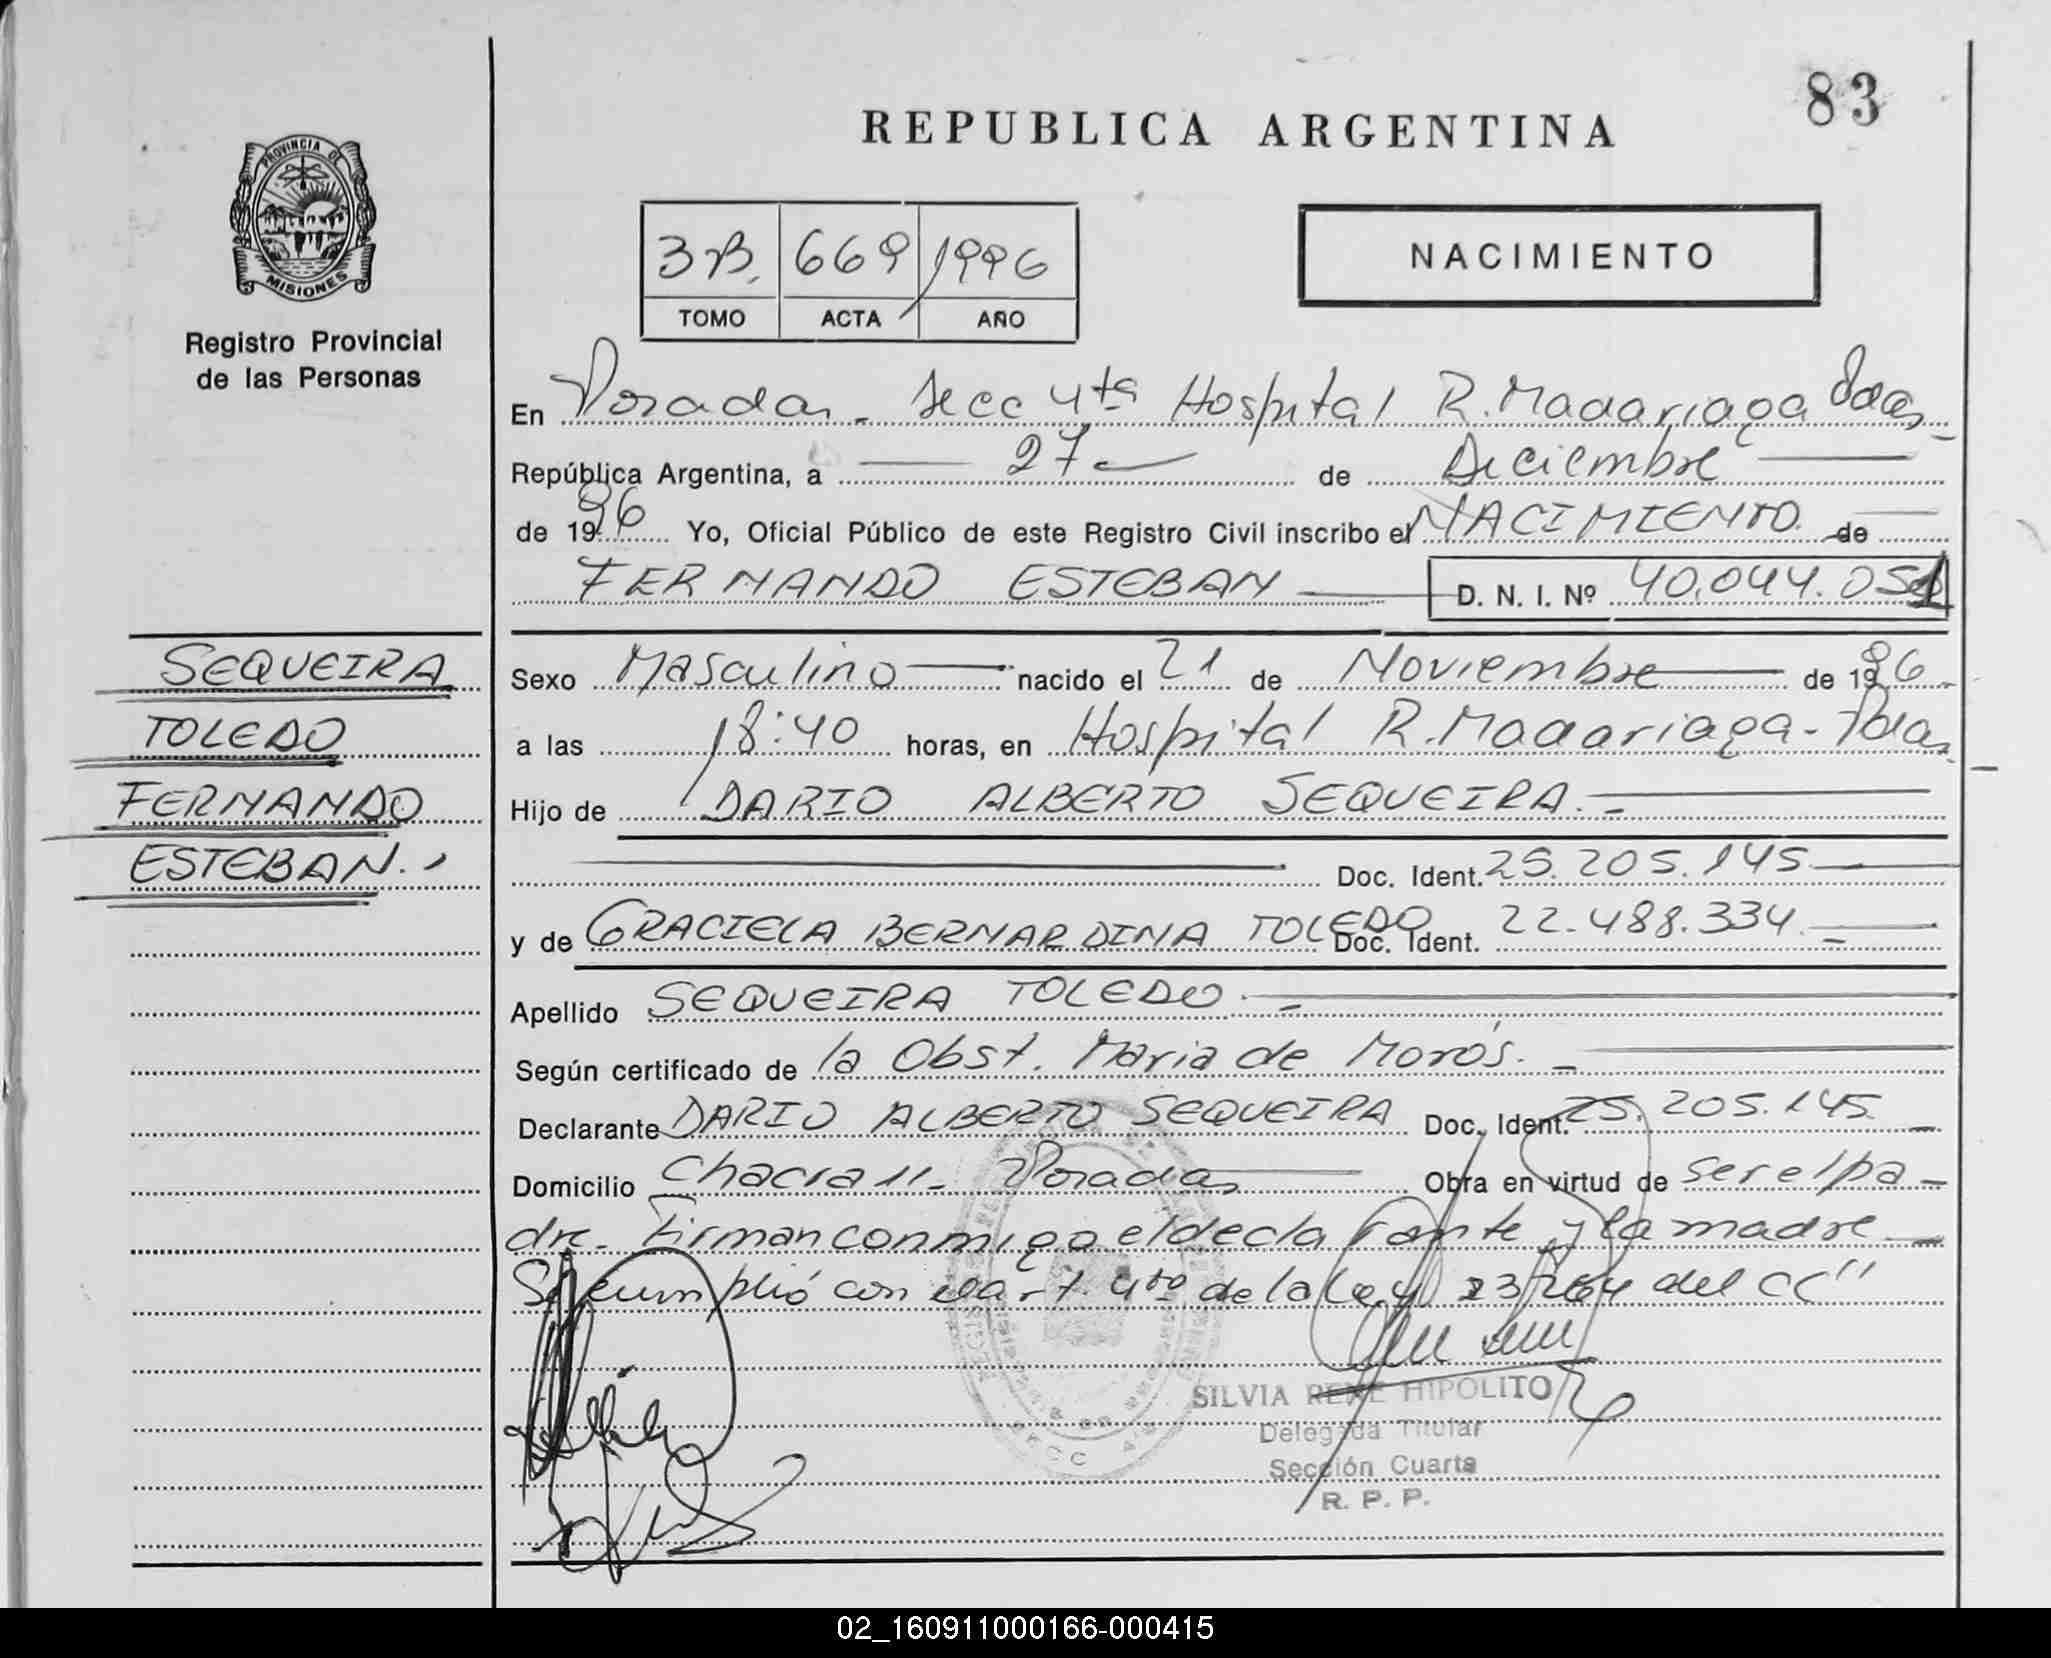 83
REPUBLICA ARGENTINA
PROVINCIA DE
MISIONES
Registro Provincial
de las Personas
3B. 669 1996
TOMO ACTA AÑO
NACIMIENTO
En Posadas - Secc 4ta Hospital R. Madariaga Pdas
República Argentina, a 27 de Diciembre
de 1996 Yo, Oficial Público de este Registro Civil inscribo el NACIMIENTO de
FERNANDO ESTEBAN D. N. I. Nº 40.044.051
SEQUEIRA
TOLEDO
FERNANDO
ESTEBAN.
Sexo Masculino nacido el 21 de Noviembre de 1996
a las 18:40 horas, en Hospital R. Madariaga - Pdas
Hijo de DARIO ALBERTO SEQUEIRA. -
Doc. Ident. 25.205.145
y de GRACIELA BERNARDINA TOLEDO Doc. Ident. 22.488.334. -
Apellido SEQUEIRA TOLEDO. -
Según certificado de la Obst. Maria de Morós. -
Declarante DARIO ALBERTO SEQUEIRA Doc. Ident. 25.205.145 -
Domicilio Chacra 11 - Posadas Obra en virtud de ser el pa -
dre - Firman conmigo el declarante y la madre -
Se cumplió con el art. 4to de la Ley 23264 del CC"
SILVIA RENE HIPOLITO
Delegada Titular
Sección Cuarta
R. P. P.
02_160911000166-000415